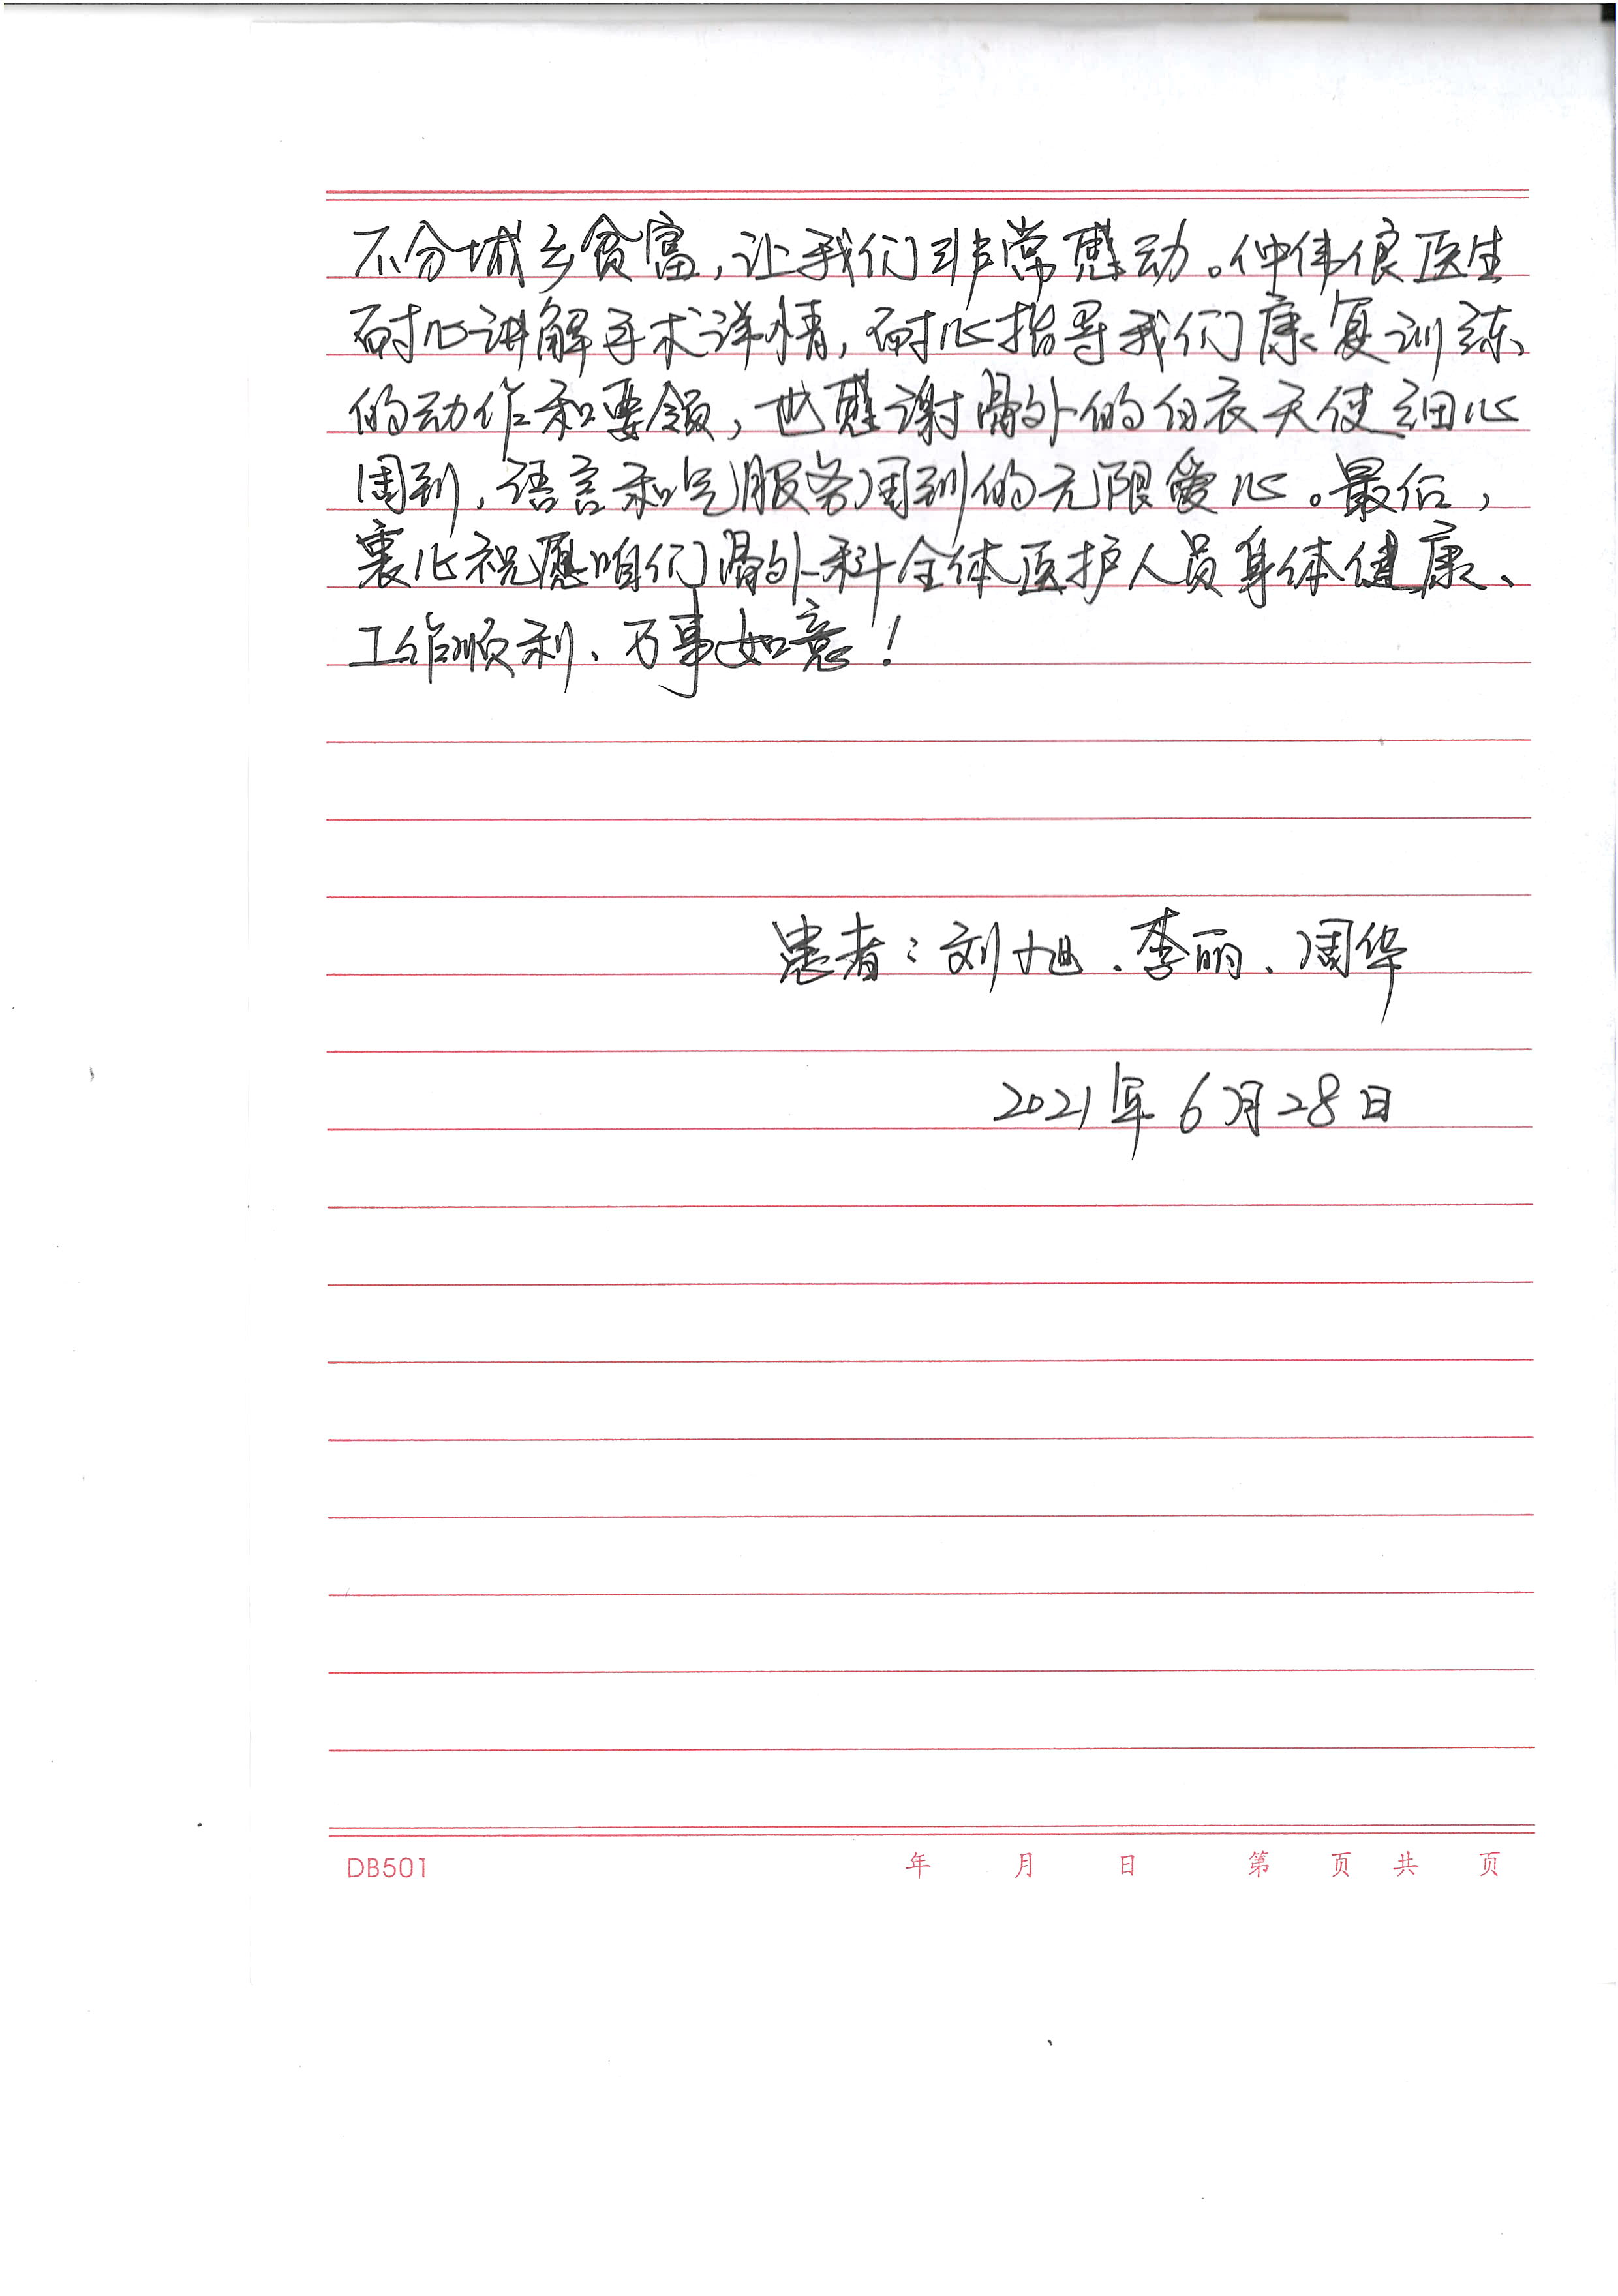 不分城乡贫富，让我们非常感动。仲伟良医生
耐心讲解手术详情，耐心指导我们康复训练
的动作和要领，也感谢骨外的白衣天使细心
周到，语言和气服务周到的无限爱心。最后，
衷心祝愿咱们骨外科全体医护人员身体健康、
工作顺利、万事如意！
患者：刘旭、李丽、周华
2021年6月28日
DB501 年 月 日 第 页 共 页